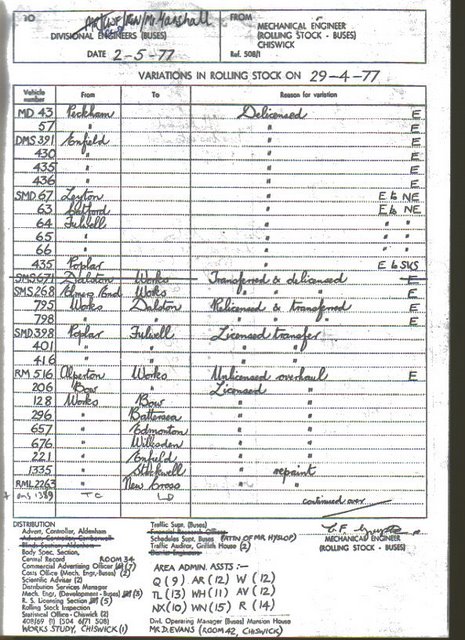 TO
DIVISIONAL ENGINEERS (BUSES)
DATE 2-5-77
FROM
MECHANICAL ENGINEER
(ROLLING STOCK - BUSES)
CHISWICK
Ref. 508/1
VARIATIONS IN ROLLING STOCK ON 29-4-77
Vehicle number From To Reason for variation
MD 43 Peckham Delicensed E
57 " " E
DMS 391 Enfield " E
430 " " E
435 " " E
436 " " E
SMD 67 Leyton " E to NE
63 Catford " E to NE
64 Fulwell " " "
65 " " " "
66 " " " "
435 Poplar " E to SKS
SMS 671 Dalston Works Transferred & delicensed E
SMS 268 Elmers End Works " " " E
795 Works Dalston Relicensed & transferred E
798 " " " " " E
SMD 398 Poplar Fulwell Licensed transfer
401 " " " "
416 " " " "
RM 516 Alperton Works Unlicensed overhaul E
206 Bow " Licensed "
128 Works Bow " "
296 " Battersea " "
657 " Edmonton " "
676 " Willesden " "
221 " Enfield " "
1335 " Stockwell " repaint
RML 2263 " New Cross "
DMS 1389 TC LD
continued over
DISTRIBUTION
Advert. Controller, Aldenham
Body Spec. Section,
Central Record ROOM 34
Commercial Advertising Officer (7)
Costs Office (Mech. Engr.-Buses) (2)
Scientific Adviser (2)
Distribution Services Manager
Mech. Engr. (Development - Buses) (3)
R. S. Licensing Section (5)
Rolling Stock Inspection
Statistical Office - Chiswick (2)
408/69 (1) (504 6/71 508)
WORKS STUDY, CHISWICK (1)
Traffic Supt. (Buses)
Financial Research Officer
Schedules Supt. Buses (ATTN OF MR. HYSLOP)
Traffic Auditor, Griffith House (2)
AREA ADMIN. ASSTS :-
Q (9) AR (12) W (12)
TL (13) WH (11) AV (12)
NX (10) WN (15) R (14)
Divl. Operating Manager (Buses) Mansion House
MR D. EVANS (ROOM 42, CHISWICK)
MECHANICAL ENGINEER
(ROLLING STOCK - BUSES)